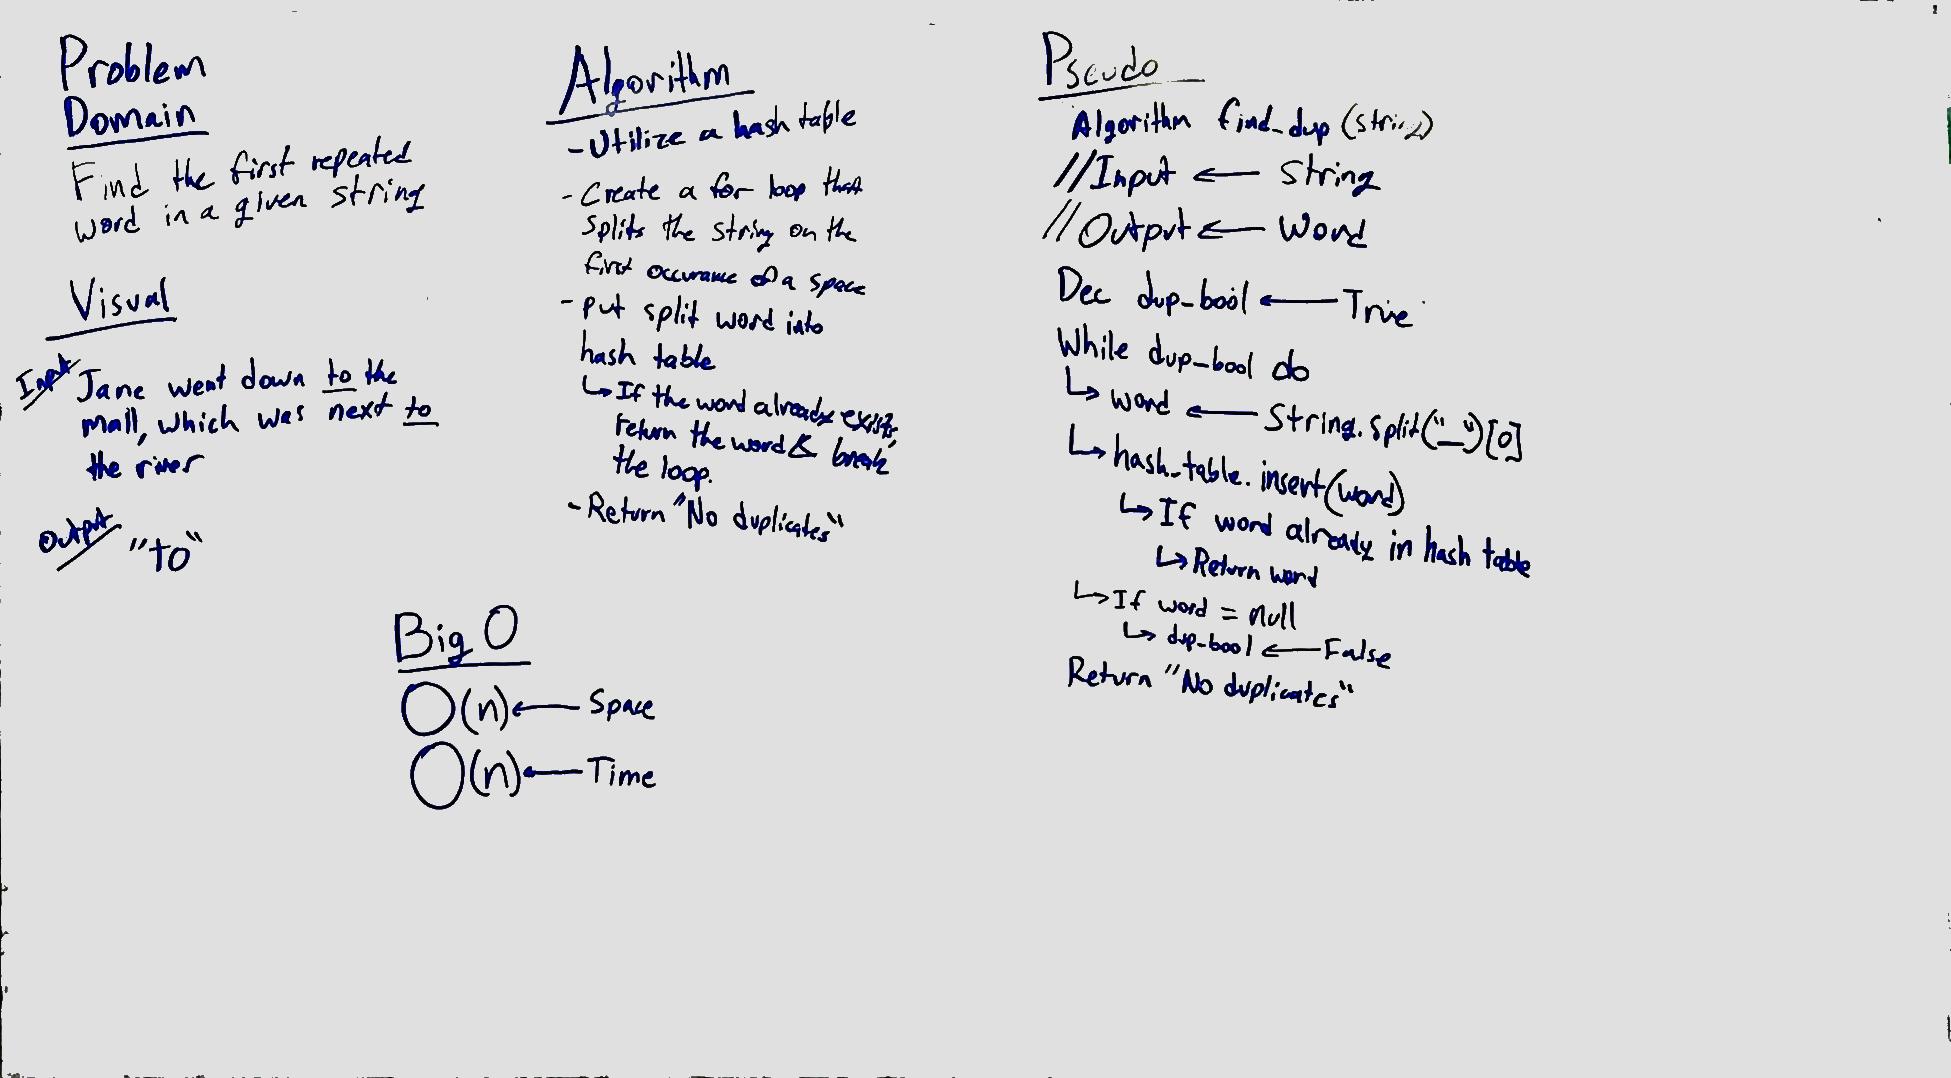 Problem
Domain
Find the first repeated
word in a given string
Visual
Input
Jane went down to the
mall, which was next to
the river
Output
"to"
Algorithm
- Utilize a hash table
- Create a for loop that
splits the string on the
first occurance of a space
- put split word into
hash table
↳ If the word already exists,
return the word & break
the loop.
- Return "No duplicates"
Big O
O(n) ← Space
O(n) ← Time
Pseudo
Algorithm find_dup (string)
//Input ← String
//Output ← Word
Dec dup_bool ← True
While dup_bool do
↳ word ← String.split("_")[0]
↳ hash_table.insert(word)
↳ If word already in hash table
↳ Return word
↳ If word = null
↳ dup_bool ← False
Return "No duplicates"